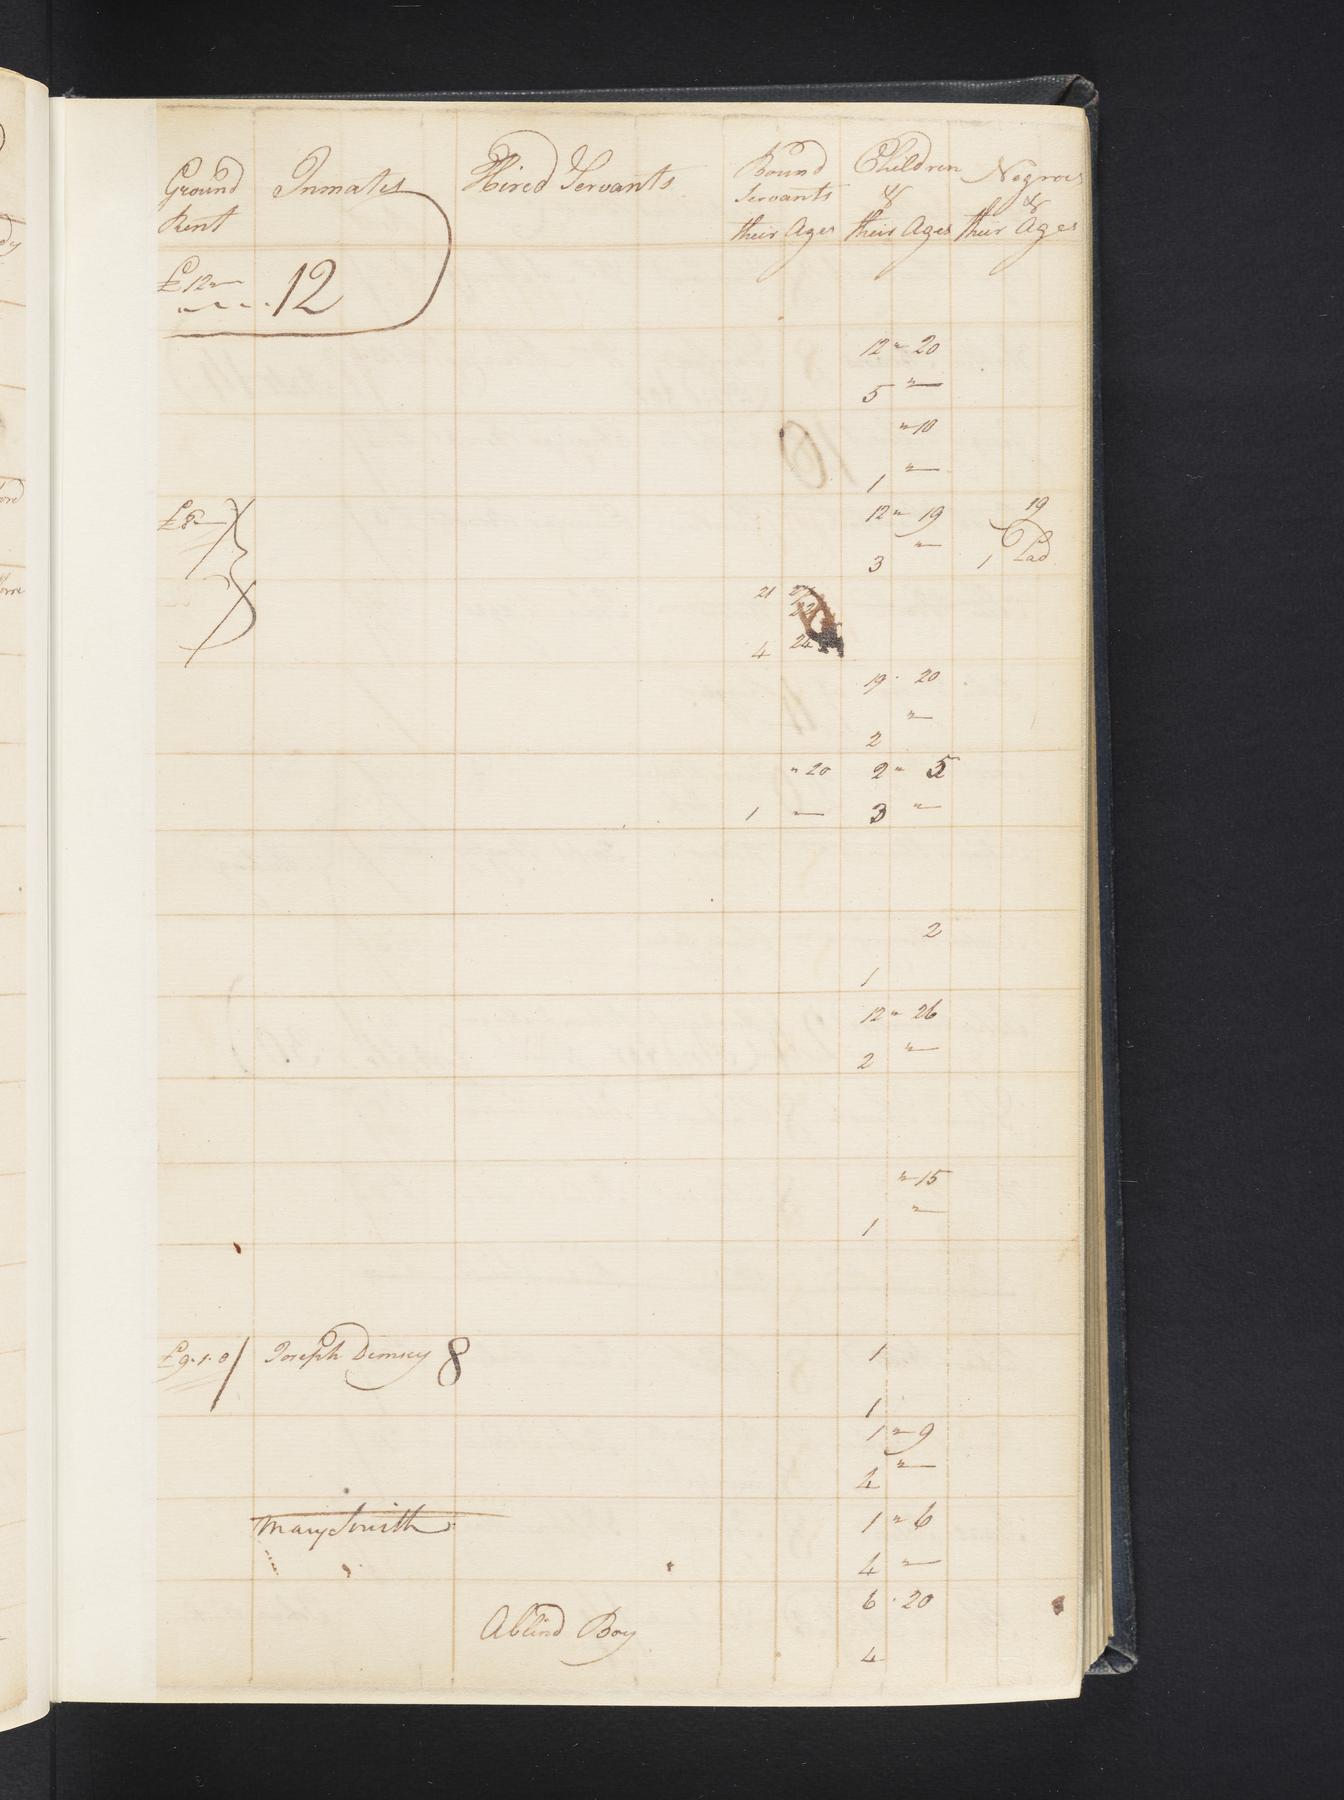 Ground Rent Inmates Hired Servants Bound Servants their Ages Children & their Ages Negroes & their Ages
£12 " —
12
12 " 20
5 " —
" 10
1 " —
£8 — 12 " 19 19
3 " — 1 Lad
21
22
4 24
19 · 20
2 "
" 20 2 " 5
1 — 3 " —
2
1
12 " 26
2 " —
" 15
1 " —
£9.1.0 Joseph Demsey 8 1
1
1 " 9
4 " —
Mary Smith 1 " 6
4 " —
6 · 20
A blind Boy
4